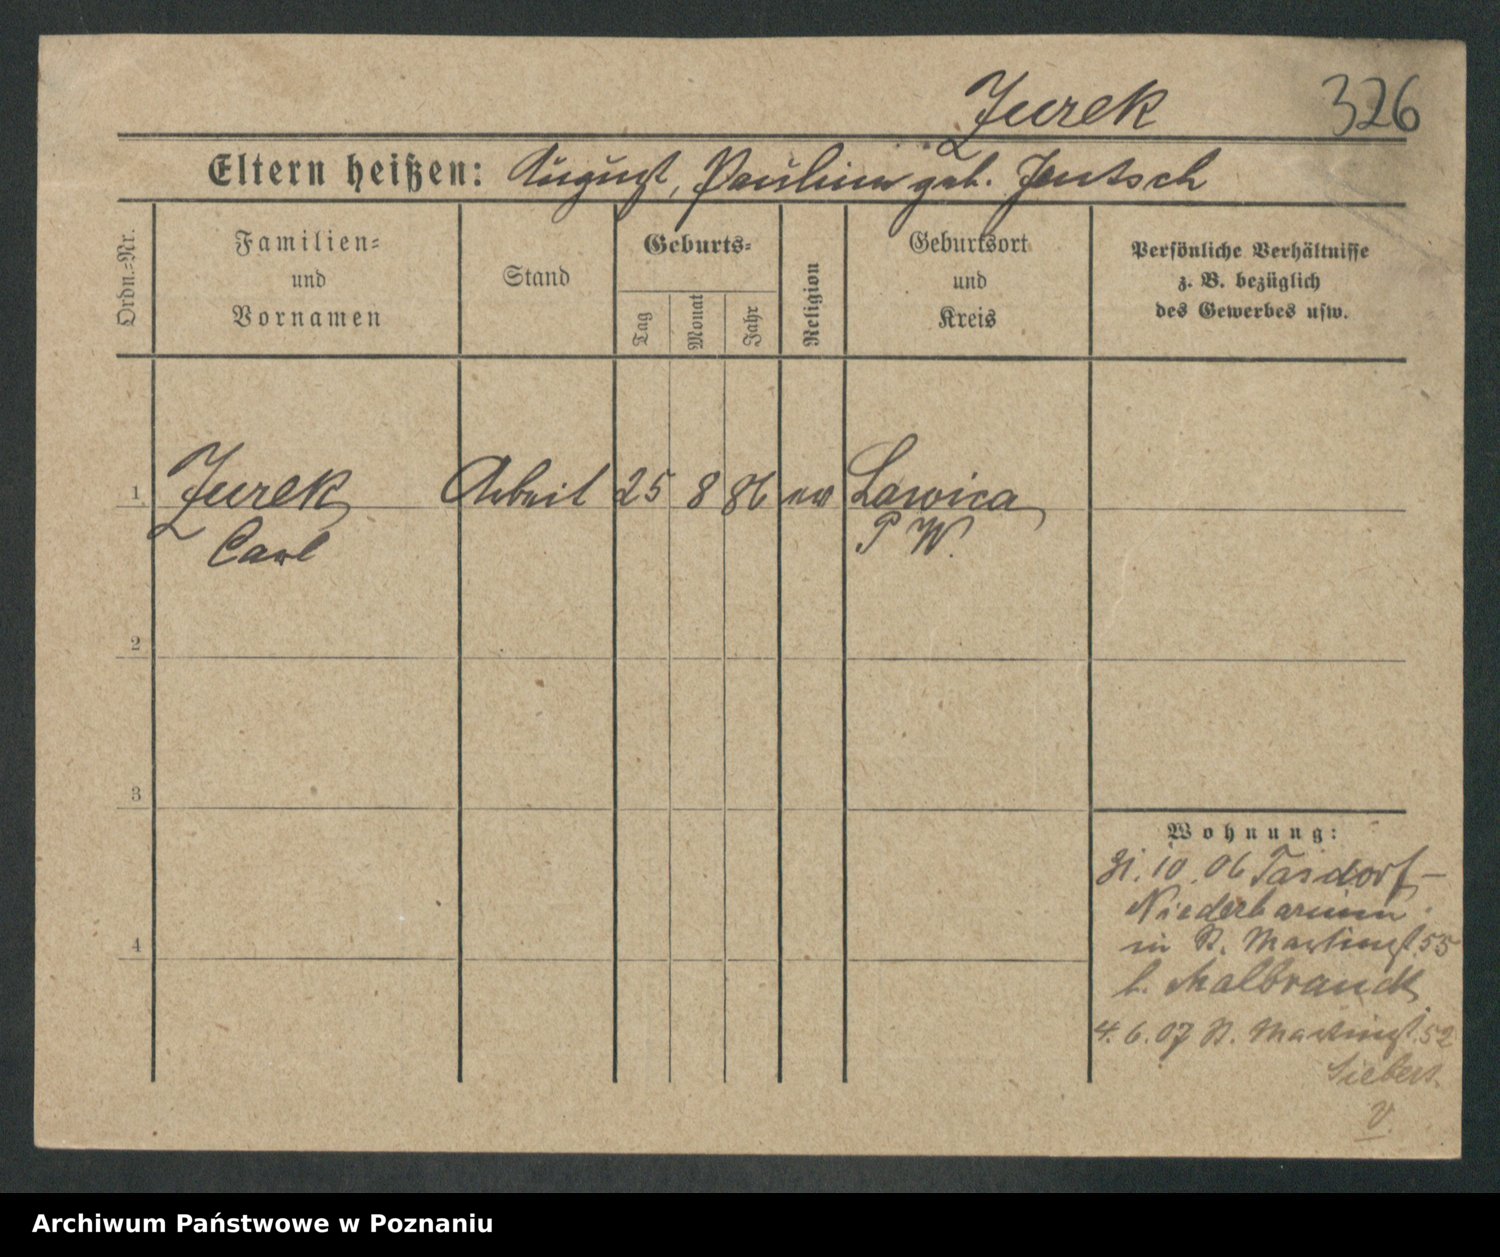 Jurek 326
Eltern heißen: August, Pauline geb. Jentsch
Ordn.=Nr.
Familien=
und
Vornamen
Stand
Geburts=
Tag
Monat
Jahr
Religion
Geburtsort
und
Kreis
Persönliche Verhältnisse
z. B. bezüglich
des Gewerbes usw.
1 Jurek Arbeit 25 8 86 ev Lawica
Carl P W.
2
3
Wohnung:
31. 10. 06 Tasdorf-
Niederbarnim
in St. Martinst. 55
b. Malbrandt
4
4. 6. 07 St. Martinst. 52
Siebert
V.
Archiwum Państwowe w Poznaniu